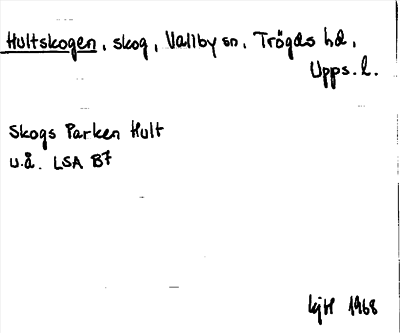 Hultskogen, skog, Vallby sn, Trögds hd,
Upps. l.
Skogs Parken Hult
u.å. LSA B7
1968